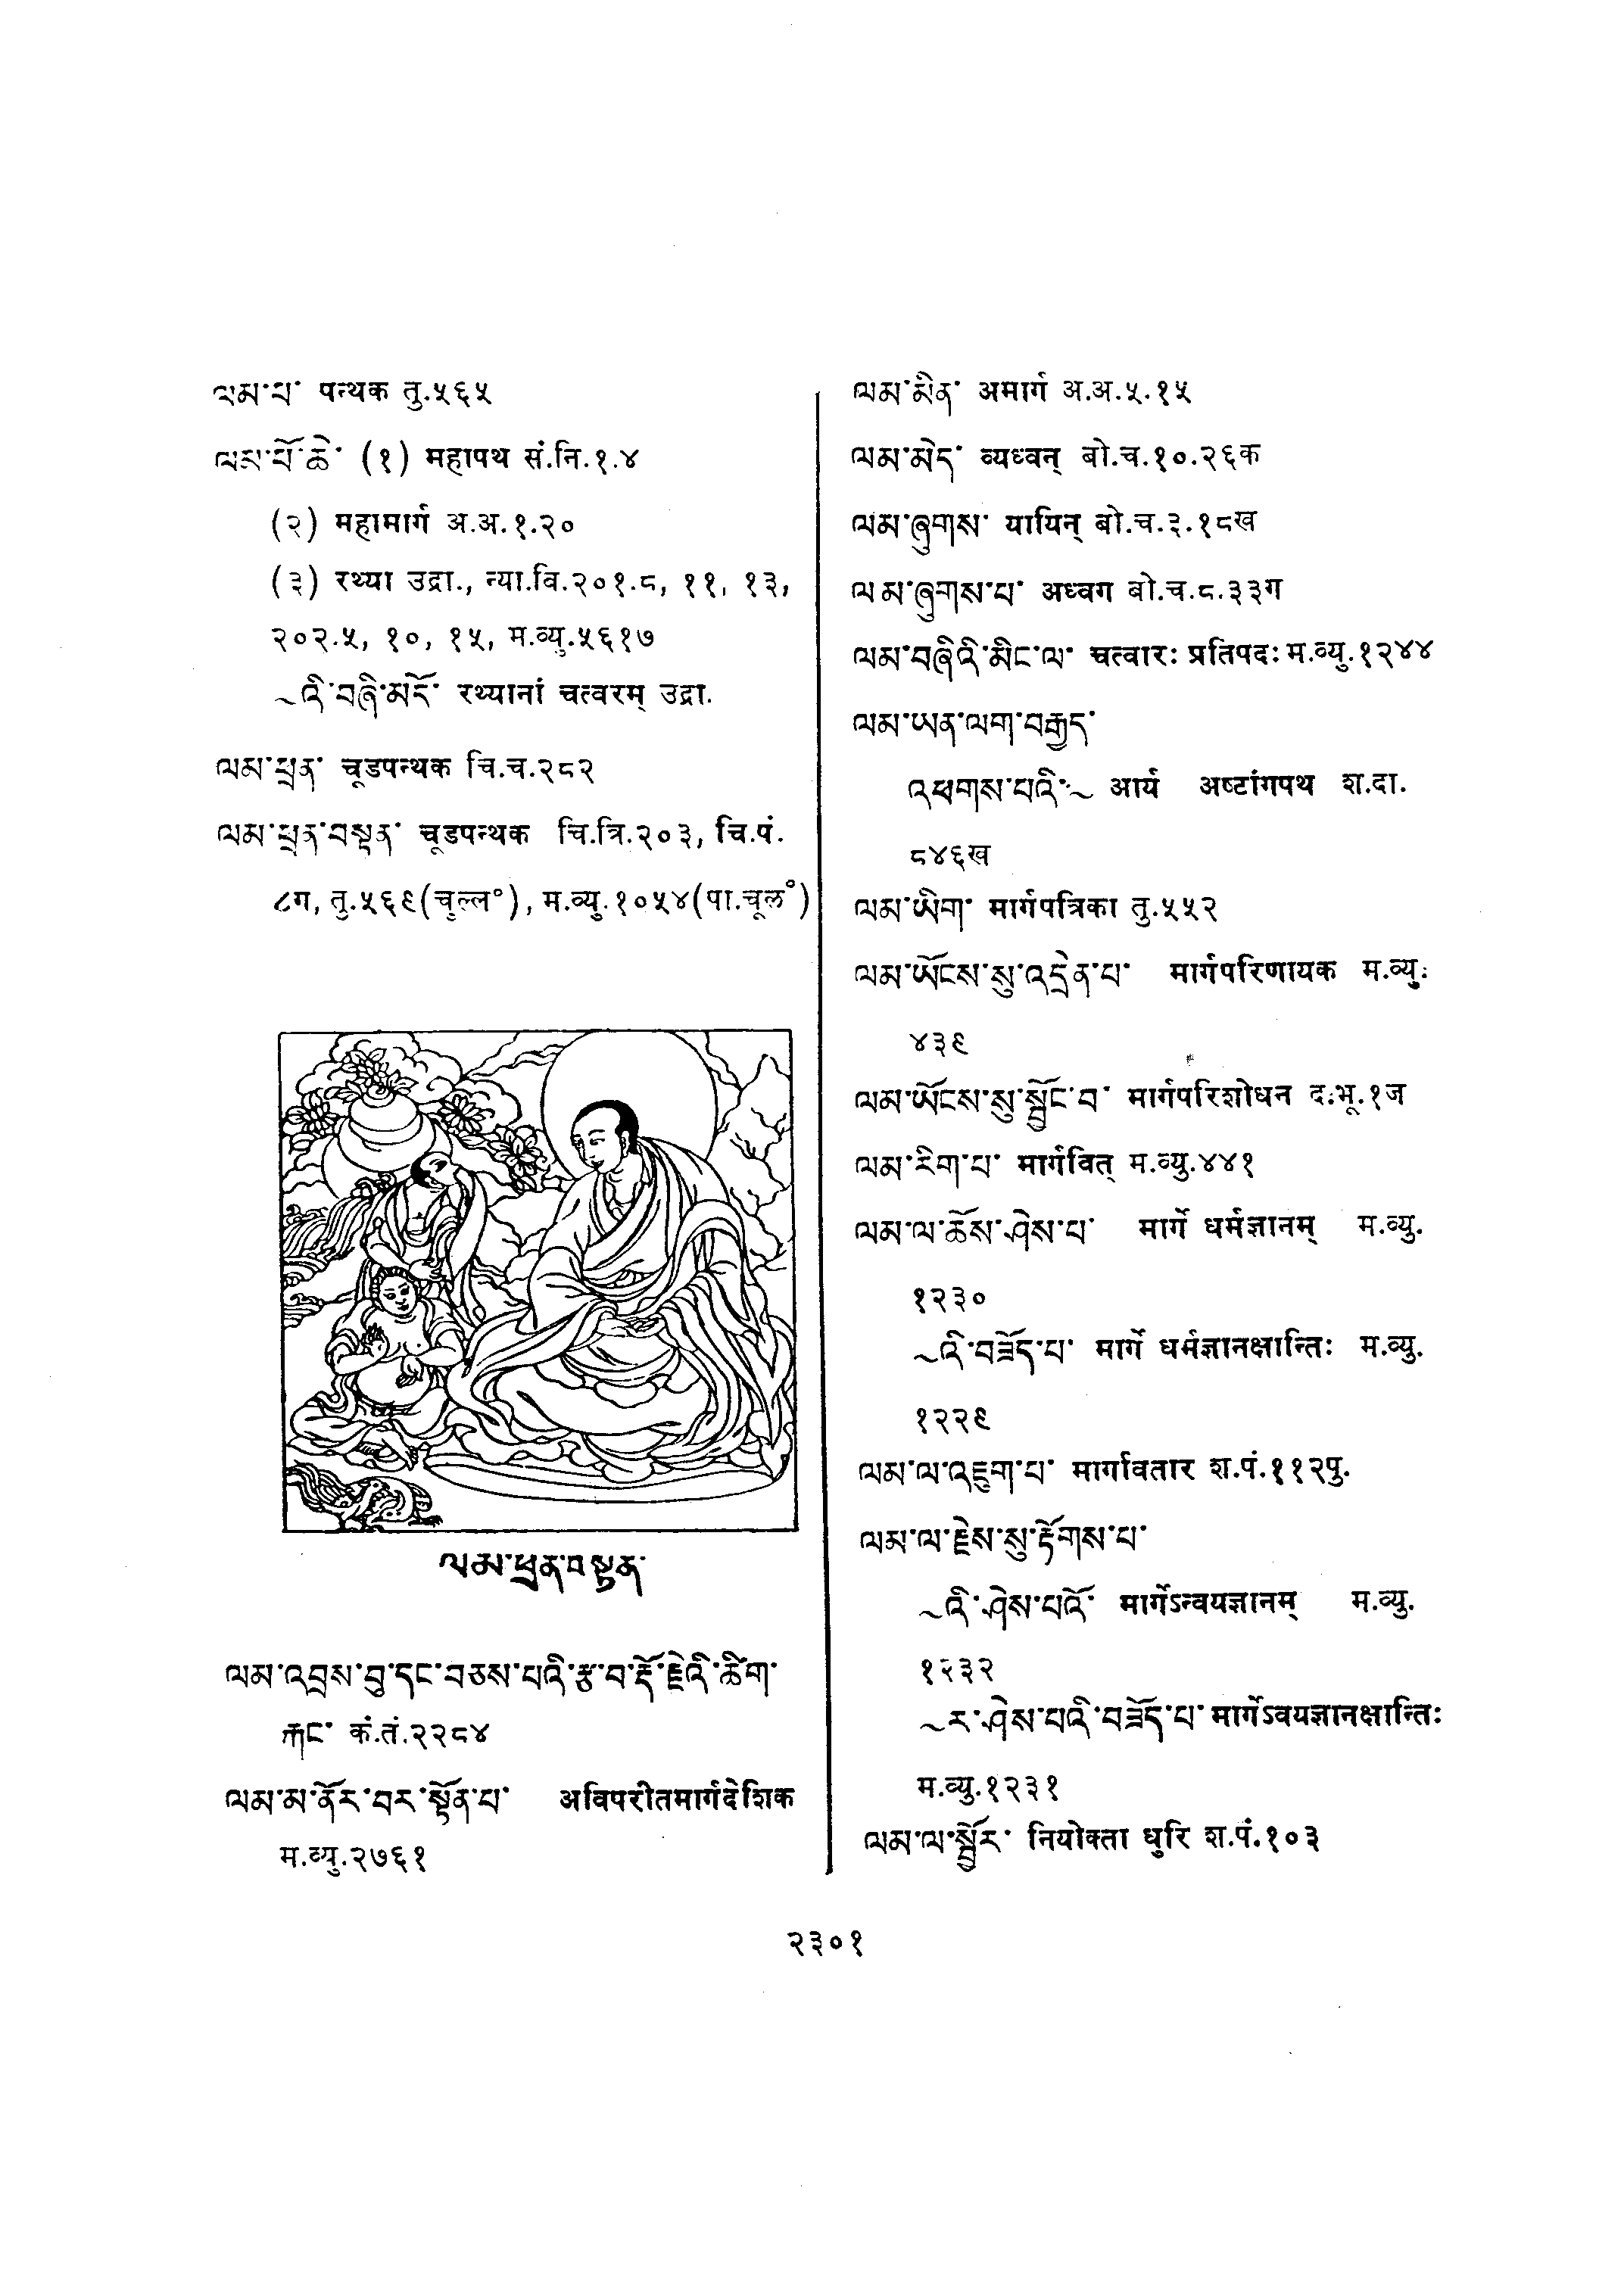 ལམ་པ་ पन्थक तु.५६५
ལམ་པོ་ཆེ་ (१) महापथ सं.नि.१.४
(२) महामार्ग अ.अ.१.२०
(३) रथ्या उद्रा., न्या.वि.२०१.८, ११, १३,
२०२.५, १०, १५, म.व्यु.५६१७
~འི་བཞི་མདོ་ रथ्यानां चत्वरम् उद्रा.
ལམ་ཕྲན་ चूडपन्थक चि.च.२८२
ལམ་ཕྲན་བསྟན་ चूडपन्थक चि.त्रि.२०३, चि.पं.
८ग, तु.५६९(चुल्ल°), म.व्यु.१०५४(पा.चूल°)
ལམ་ཕྲན་བསྟན་
ལམ་འབྲས་བུ་དང་བཅས་པའི་རྩ་བ་རྡོ་རྗེའི་ཚིག་
རྐང་ कं.तं.२२८४
ལམ་མ་ནོར་བར་སྟོན་པ་ अविपरीतमार्गदेशिक
म.व्यु.२७६१
ལམ་མིན་ अमार्ग अ.अ.५.१५
ལམ་མེད་ व्यध्वन् बो.च.१०.२६क
ལམ་ཞུགས་ यायिन् बो.च.३.१८ख
ལམ་ཞུགས་པ་ अध्वग बो.च.८.३३ग
ལམ་བཞིའི་མིང་ལ་ चत्वारः प्रतिपदः म.व्यु.१२४४
ལམ་ཡན་ལག་བརྒྱད་
འཕགས་པའི་~ आर्य अष्टांगपथ श.दा.
८४६ख
ལམ་ཡིག་ मार्गपत्रिका तु.५५२
ལམ་ཡོངས་སུ་འདྲེན་པ་ मार्गपरिणायक म.व्यु.
४३९
ལམ་ཡོངས་སུ་སྦྱོང་བ་ मार्गपरिशोधन द.भू.१ज
ལམ་རིག་པ་ मार्गवित् म.व्यु.४४१
ལམ་ལ་ཆོས་ཤེས་པ་ मार्गे धर्मज्ञानम् म.व्यु.
१२३०
~འི་བཟོད་པ་ मार्गे धर्मज्ञानक्षान्तिः म.व्यु.
१२२९
ལམ་ལ་འཇུག་པ་ मार्गावतार श.पं.११२पु.
ལམ་ལ་རྗེས་སུ་རྟོགས་པ་
~འི་ཤེས་པའོ་ मार्गेऽन्वयज्ञानम् म.व्यु.
१२३२
~ར་ཤེས་པའི་བཟོད་པ་ मार्गेऽवयज्ञानक्षान्तिः
म.व्यु.१२३१
ལམ་ལ་སྦྱོར་ नियोक्ता धुरि श.पं.१०३
२३०१